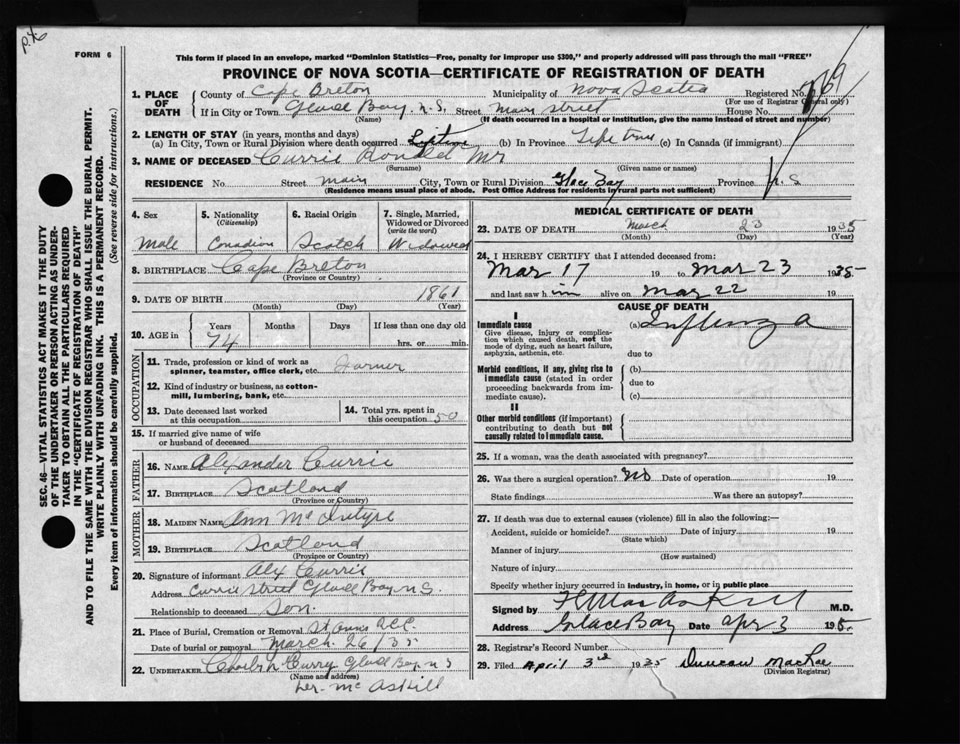 FORM 6
This form if placed in an envelope, marked "Dominion Statistics—Free, penalty for improper use $300," and properly addressed will pass through the mail "FREE"
PROVINCE OF NOVA SCOTIA—CERTIFICATE OF REGISTRATION OF DEATH
SEC. 46—VITAL STATISTICS ACT MAKES IT THE DUTY
OF THE UNDERTAKER OR PERSON ACTING AS UNDER-
TAKER TO OBTAIN ALL THE PARTICULARS REQUIRED
IN THE "CERTIFICATE OF REGISTRATION OF DEATH"
AND TO FILE THE SAME WITH THE DIVISION REGISTRAR WHO SHALL ISSUE THE BURIAL PERMIT.
WRITE PLAINLY WITH UNFADING INK. THIS IS A PERMANENT RECORD.
Every item of information should be carefully supplied. (See reverse side for instructions.)
1. PLACE OF DEATH
County of Cape Breton Municipality of Nova Scotia Registered No.
(For use of Registrar General only)
If in City or Town Glace Bay, N.S. Street Main Street House No.
(Name) (If death occurred in a hospital or institution, give name instead of street and number)
2. LENGTH OF STAY (in years, months and days)
(a) In City, Town or Rural Division where death occurred Lifetime (b) In Province Life time (c) In Canada (if immigrant)
3. NAME OF DECEASED Currie Ronald Mr
(Surname) (Given name or names)
RESIDENCE No. Street Main City, Town or Rural Division Glace Bay Province N.S
(Residence means usual place of abode. Post Office Address for residents in rural parts not sufficient)
4. Sex Male
5. Nationality (Citizenship) Canadian
6. Racial Origin Scotch
7. Single, Married, Widowed or Divorced (write the word) Widowed
8. BIRTHPLACE Cape Breton
(Province or Country)
9. DATE OF BIRTH 1861
(Month) (Day) (Year)
10. AGE in Years Months Days If less than one day old
74 hrs. or min.
OCCUPATION
11. Trade, profession or kind of work as
spinner, teamster, office clerk, etc. Farmer
12. Kind of industry or business, as cotton-
mill, lumbering, bank, etc.
13. Date deceased last worked
at this occupation
14. Total yrs. spent in
this occupation 50
15. If married give name of wife
or husband of deceased
FATHER
16. NAME Alexander Currie
17. BIRTHPLACE Scotland
(Province or Country)
MOTHER
18. MAIDEN NAME Ann McIntyre
19. BIRTHPLACE Scotland
(Province or Country)
20. Signature of informant Alex Currie
Address Currie Street Glace Bay N S.
Relationship to deceased Son.
21. Place of Burial, Cremation or Removal St Anns
Date of burial or removal March 26/35
22. UNDERTAKER Curry Glace Bay N S
(Name and address)
per- McAskill
MEDICAL CERTIFICATE OF DEATH
23. DATE OF DEATH March 23 1935
(Month) (Day) (Year)
24. I HEREBY CERTIFY that I attended deceased from:
Mar 17 19 to Mar 23 1935
and last saw him alive on Mar 22 19
CAUSE OF DEATH
I
Immediate cause
Give disease, injury or complica-
tion which caused death, not the
mode of dying, such as heart failure,
asphyxia, asthenia, etc.
(a) Influenza
due to
Morbid conditions, if any, giving rise to
immediate cause (stated in order
proceeding backwards from im-
mediate cause).
(b)
due to
(c)
II
Other morbid conditions (if important)
contributing to death but not
causally related to immediate cause.
25. If a woman, was the death associated with pregnancy?
26. Was there a surgical operation? No Date of operation 19
State findings Was there an autopsy?
27. If death was due to external causes (violence) fill in also the following:—
Accident, suicide or homicide? Date of injury 19
(State which)
Manner of injury
(How sustained)
Nature of injury
Specify whether injury occurred in industry, in home, or in public place
Signed by M.D.
Address Glace Bay Date Apr 3 19
28. Registrar's Record Number
29. Filed April 3rd 1935 Duncan MacRae
(Division Registrar)